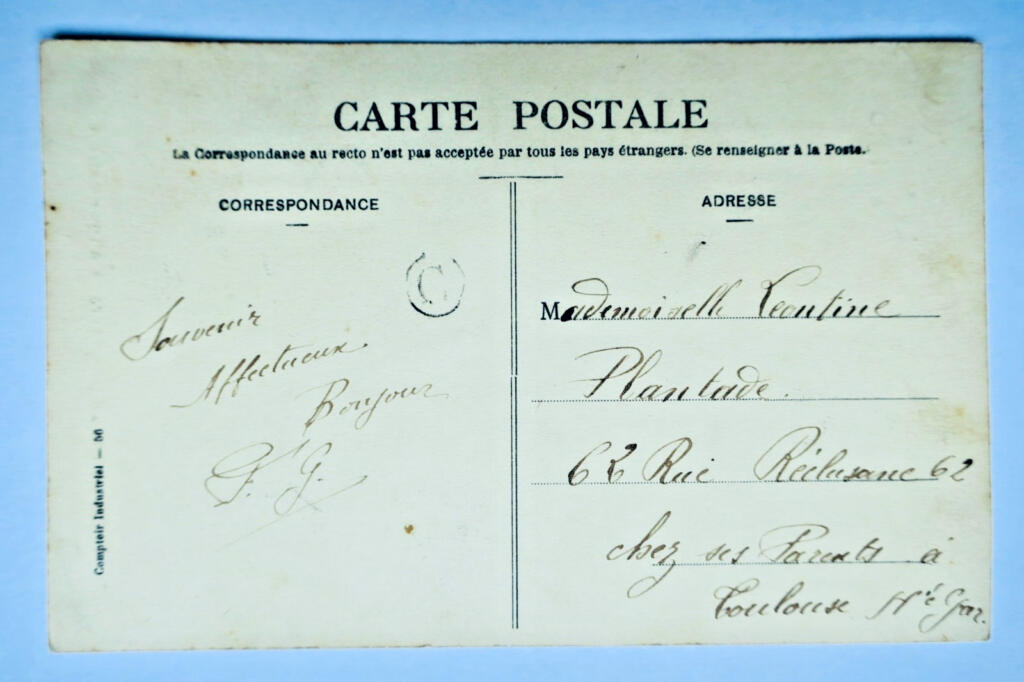 CARTE POSTALE
La Correspondance au recto n'est pas acceptée par tous les pays étrangers. (Se renseigner à la Poste.
CORRESPONDANCE
C
Souvenir
Affectueux
Bonjour
F. G.
Comptoir Industriel — 56
ADRESSE
Mademoiselle Leontine
Plantade.
62 Rue Réclusane 62
chez ses Parents à
Toulouse Hte Gar.